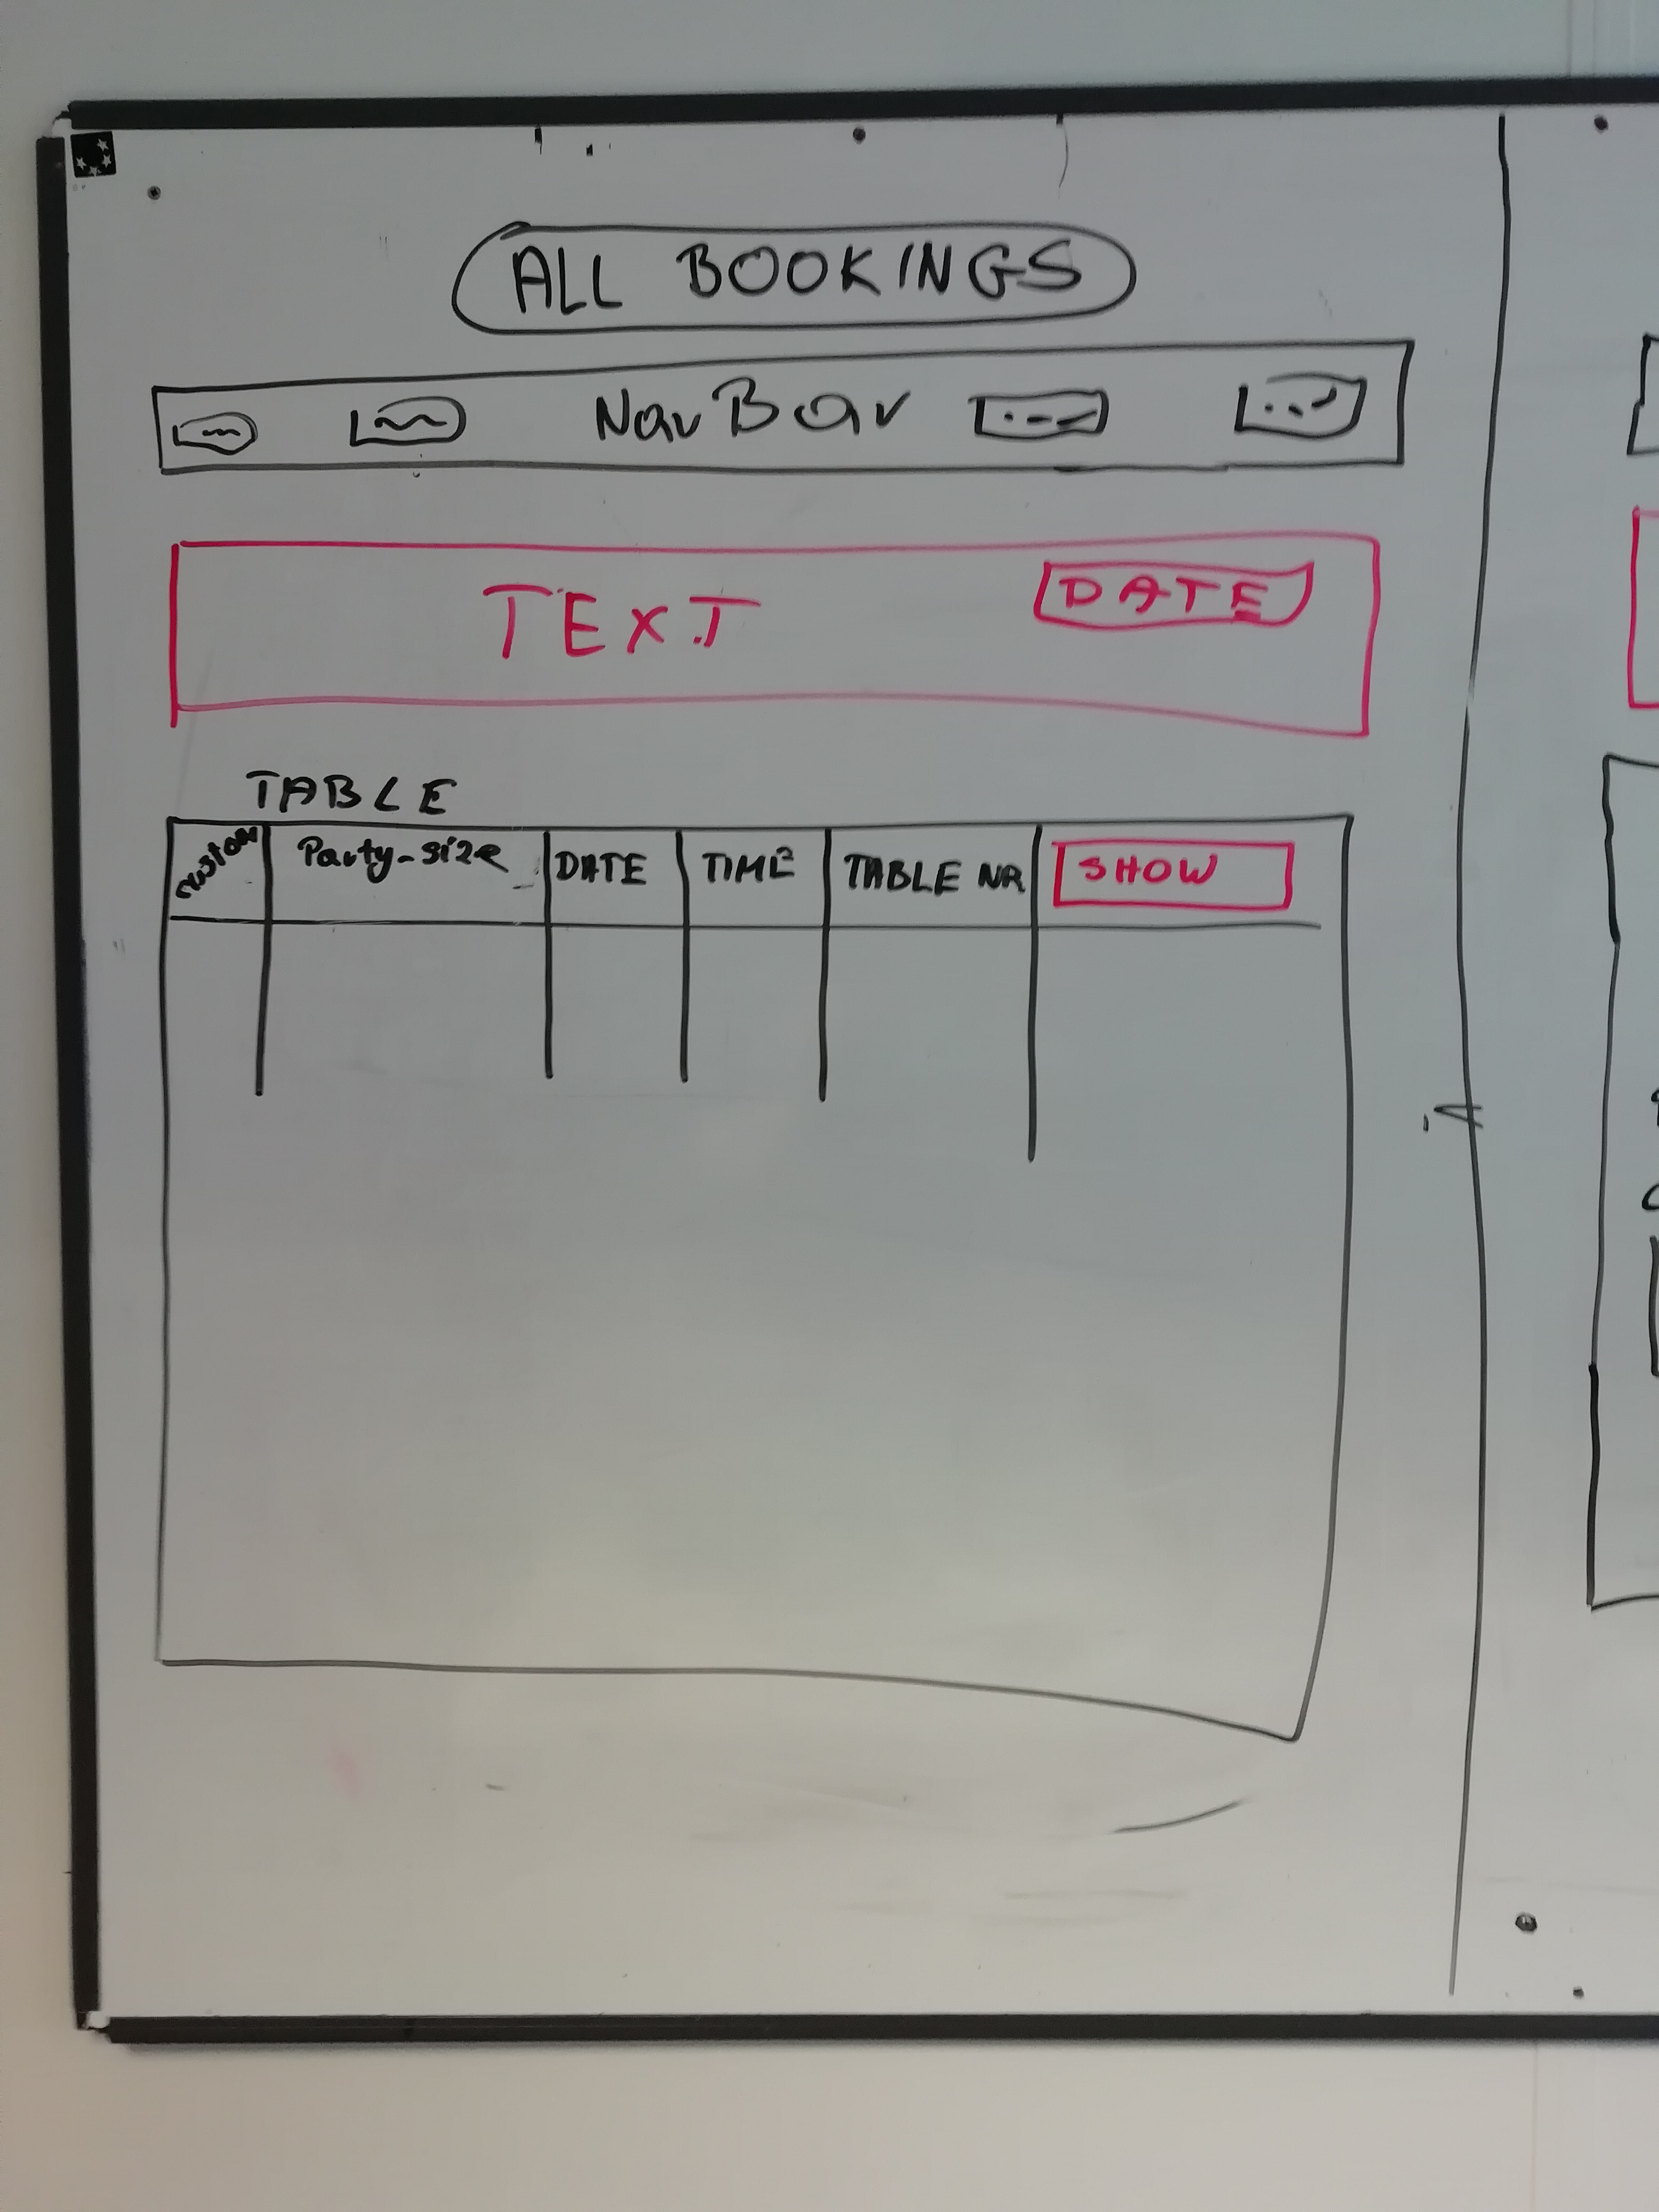 ALL BOOKINGS
NavBar
TEXT
DATE
TABLE
Party-size
DATE
TIME
TABLE NR
SHOW